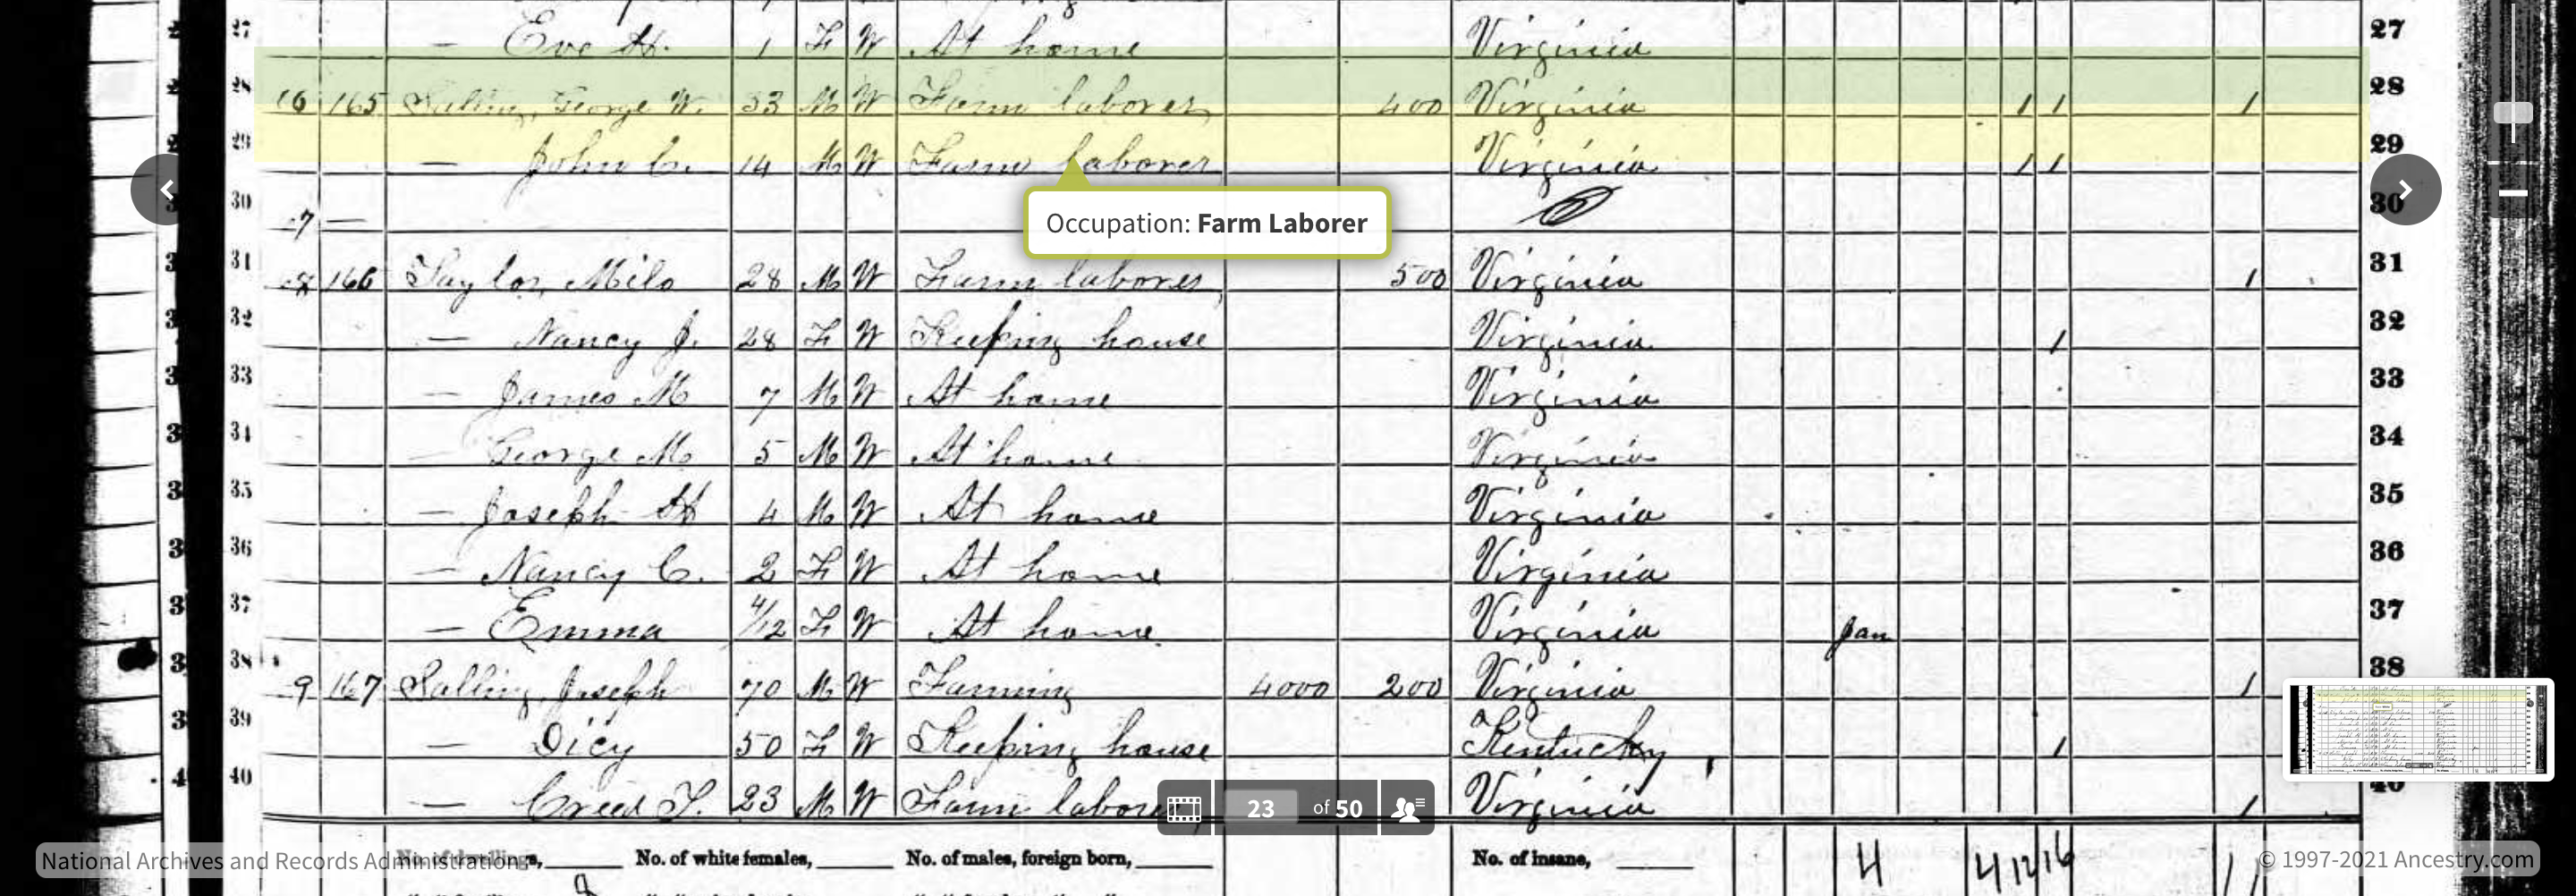 27 — Eve H. 1 F W At home Virginia 27
28 16 165 Salling, George W. 33 M W Farm laborer 400 Virginia 1 1 1 28
29 — John C. 14 M W Farm laborer Virginia 1 1 29
30 7 — 30
Occupation: Farm Laborer
31 8 166 Taylor, Milo 28 M W Farm laborer 500 Virginia 1 31
32 — Nancy J. 28 F W Keeping house Virginia 1 32
33 — James M 7 M W At home Virginia 33
34 — George M 5 M W At home Virginia 34
35 — Joseph H 4 M W At home Virginia 35
36 — Nancy C. 2 F W At home Virginia 36
37 — Emma 4/12 F W At home Virginia Jan 37
38 9 167 Salling, Joseph 70 M W Farming 4000 200 Virginia 1 38
39 — Dicy 50 F W Keeping house Kentucky 1 39
40 — Creed T. 23 M W Farm laborer Virginia 1 40
23 of 50
No. of dwellings, No. of white females, No. of males, foreign born, No. of insane, 4 4 12 16 11
National Archives and Records Administration
© 1997-2021 Ancestry.com